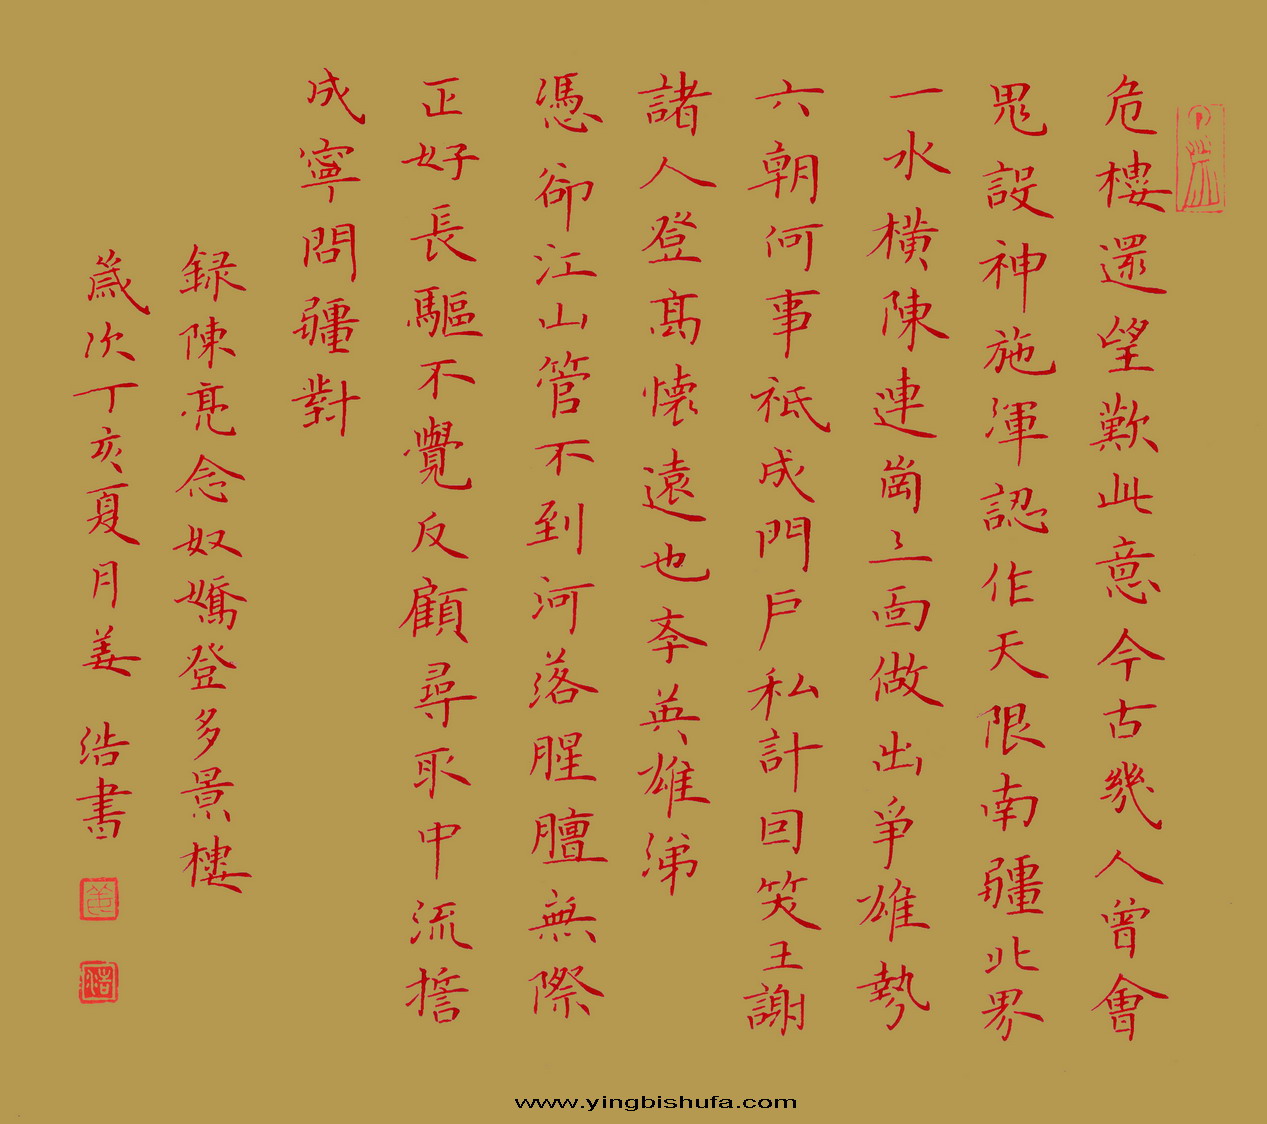 危樓還望歎此意今古幾人曾會
鬼設神施渾認作天限南疆北界
一水橫陳連崗三面做出爭雄勢
六朝何事祗成門戶私計回笑王謝
諸人登高懷遠也斈英雄涕
憑卻江山管不到河落腥膻無際
正好長驅不覺反顧尋取中流誓
成寧問疆對
録陳亮念奴嬌登多景樓
歲次丁亥夏月姜 浩書
www.yingbishufa.com